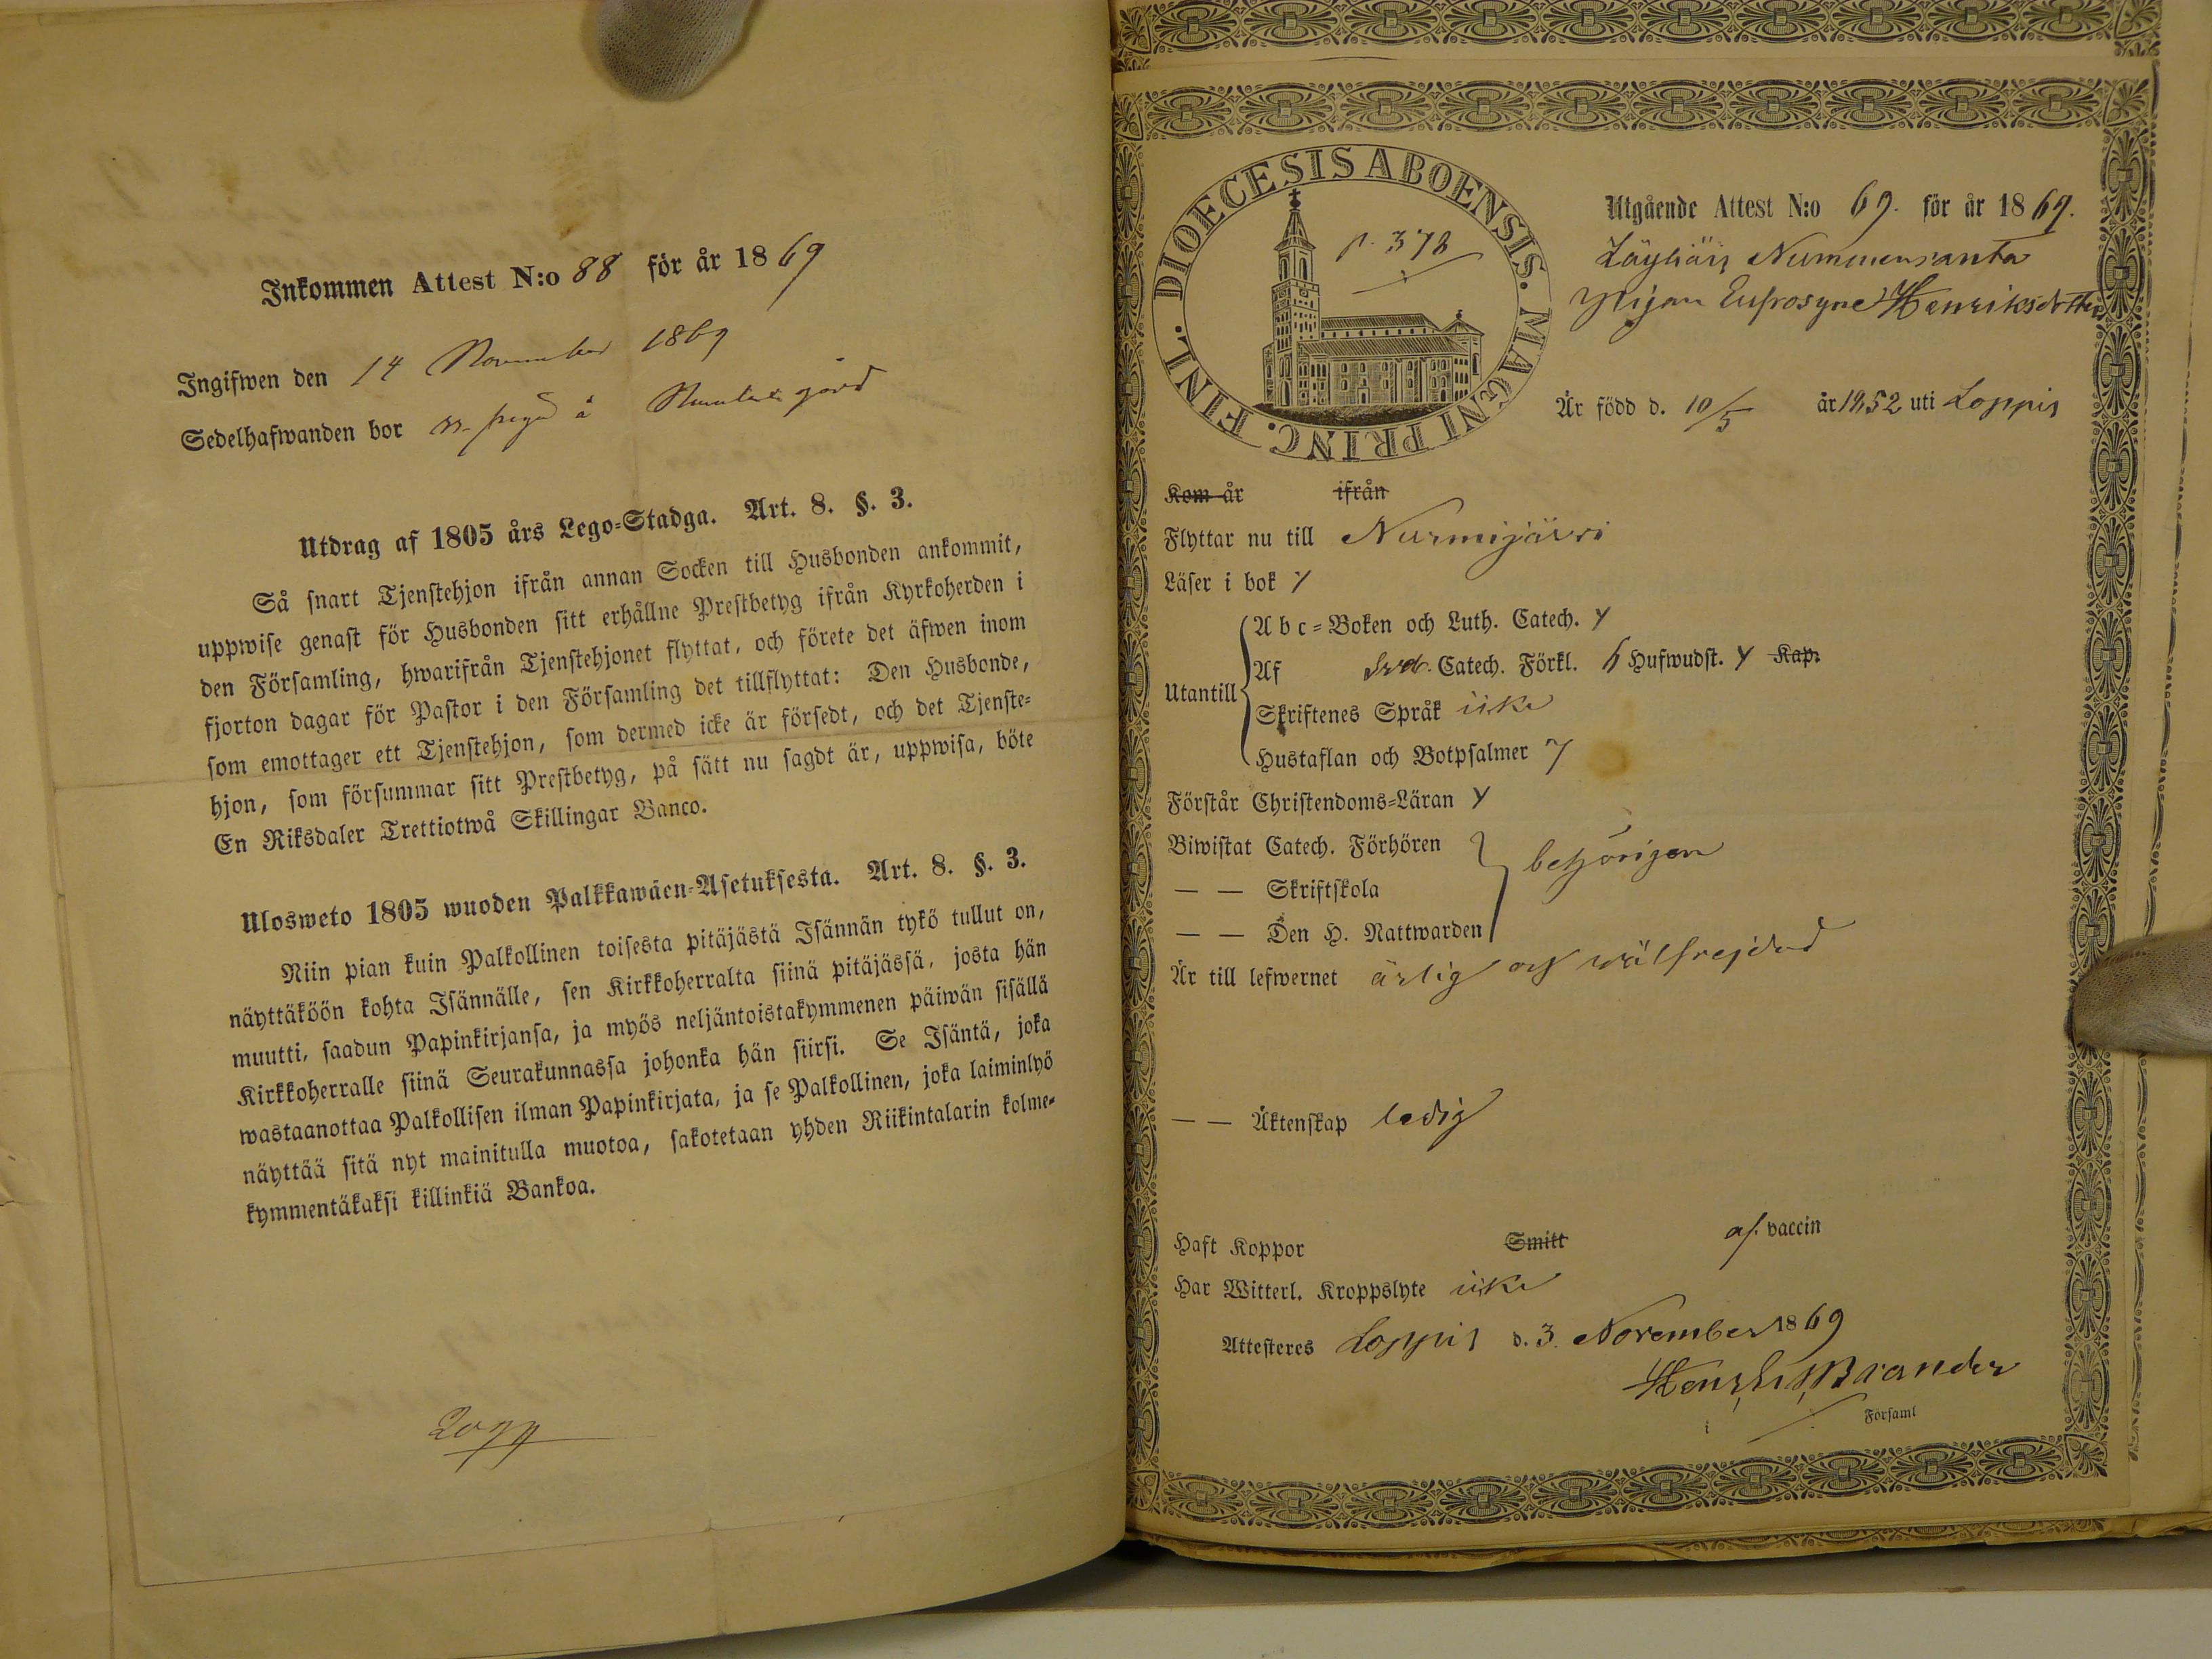 Inkommen Attest N:o 88 för år 1869
Ingifwen den 14 November 1869
Sedelhafwanden bor ss. piga å gård
Utdrag af 1805 års Lego-Stadga. Art. 8. §. 3.
Så snart Tjenstehjon ifrån annan Socken till Husbonden ankommit,
uppwise genast för Husbonden sitt erhållne Prestbetyg ifrån Kyrkoherden i
den Församling, hwarifrån Tjenstehjonet flyttat, och förete det äfwen inom
fjorton dagar för Pastor i den Församling det tillflyttat: Den Husbonde,
som emottager ett Tjenstehjon, som dermed icke är försedt, och det Tjenste-
hjon, som försummar sitt Prestbetyg, på sätt nu sagdt är, uppwisa, böte
En Riksdaler Trettiotwå Skillingar Banco.
Ulosweto 1805 wuoden Palkkawäen-Asetuksesta. Art. 8. §. 3.
Niin pian kuin Palkollinen toisesta pitäjästä Isännän tykö tullut on,
näyttäköön kohta Isännälle, sen Kirkkoherralta siinä pitäjässä, josta hän
muutti, saadun Papinkirjansa, ja myös neljäntoistakymmenen päiwän sisällä
Kirkkoherralle siinä Seurakunnassa johonka hän siirsi. Se Isäntä, joka
wastaanottaa Palkollisen ilman Papinkirjata, ja se Palkollinen, joka laiminlyö
näyttää sitä nyt mainitulla muotoa, sakotetaan yhden Riikintalarin kolme-
kymmentäkaksi killinkiä Bankoa.
DIOECESIS ABOENSIS. MAGNI PRINC. FINL.
p. 378
Utgående Attest N:o 69. för år 1869.
Läyliäis Nummensanta
Pigan Eufrosyne Henriksdotter
Är född d. 10/5 år 1852 uti Loppis
Kom år ifrån
Flyttar nu till Nurmijärvi
Läser i bok y
Utantill
Abc-Boken och Luth. Catech. y
Af Sved. Catech. Förkl. 6 Hufwudst. y Kap.
Skriftenes Språk icke
Hustaflan och Botpsalmer y
Förstår Christendoms-Läran y
Biwistat Catech. Förhören
— — Skriftskola behörigen
— — Den H. Nattwarden
Är till lefwernet ärlig och wälfrejdad
— — Äktenskap ledig
Haft Koppor Smitt af vaccin
Har Witterl. Kroppslyte icke
Attesteres Loppis d. 3. November 1869
Brander
i Församl